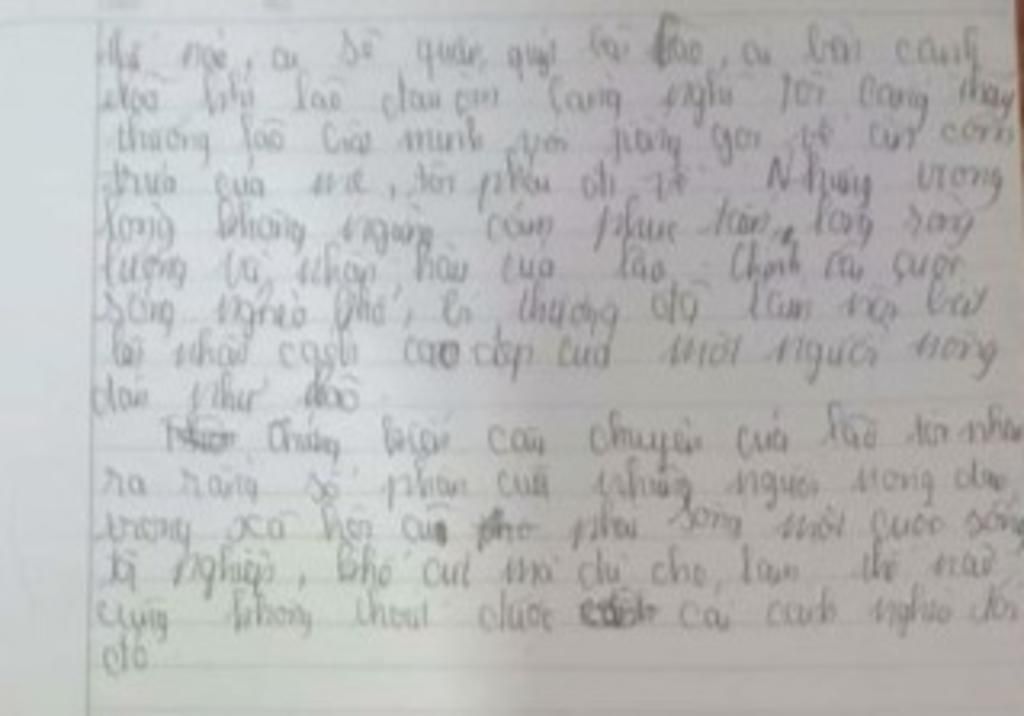 thế nào, ai sẽ quấn quýt lấy lão, ai bên cạnh
khi lão đau ốm càng nghĩ tôi càng thấy
thương lão của mình về ăn cơm
trưa của mẹ, tôi phải đi về. Nhưng trong
lòng không ngừng cảm phục tấm lòng
lương và nhân hậu của lão. Chính cái cuộc
sống nghèo khó, bi thương đó làm nên
nhân cách cao đẹp của một người nông
dân như lão
Thông qua câu chuyện của lão tôi nhận
ra rằng số phận của những người nông dân
trong xã hội cũ phải sống một cuộc sống
tội nghiệp, khổ cực mà dù cho làm thế nào
cũng không thoát được cái cảnh nghèo đói
đó